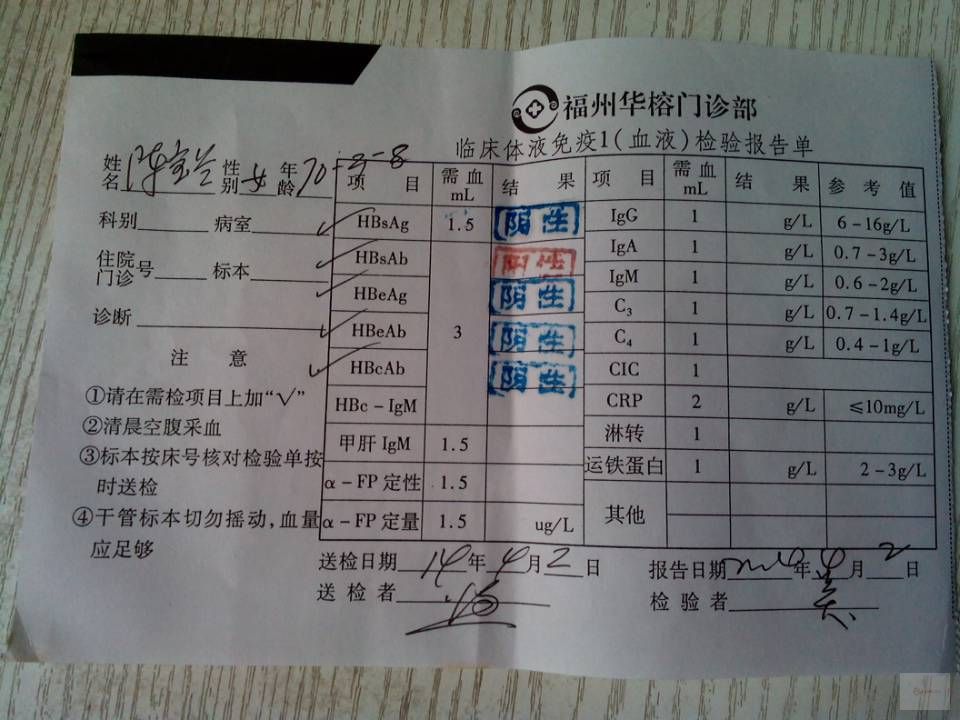 福州华榕门诊部
临床体液免疫1(血液)检验报告单
姓名 陈宝兰 性别 女 年龄 70-3-8
科别 病室
住院门诊号 标本
诊断
注 意
①请在需检项目上加“√”
②清晨空腹采血
③标本按床号核对检验单按
时送检
④干管标本切勿摇动,血量
应足够
项 目 需血mL 结 果 项 目 需血mL 结 果 参考值
√ HBsAg 1.5 阴性 IgG 1 g/L 6-16g/L
√ HBsAb 3 阳性 IgA 1 g/L 0.7-3g/L
√ HBeAg 阴性 IgM 1 g/L 0.6-2g/L
√ HBeAb 阴性 C₃ 1 g/L 0.7-1.4g/L
√ HBcAb 阴性 C₄ 1 g/L 0.4-1g/L
CIC 1
HBc-IgM CRP 2 g/L ≤10mg/L
甲肝 IgM 1.5 淋转 1
α-FP 定性 1.5 运铁蛋白 1 g/L 2-3g/L
α-FP 定量 1.5 ug/L 其他
送检日期 14 年 4 月 2 日 报告日期 2014 年 4 月 2 日
送检者 检验者